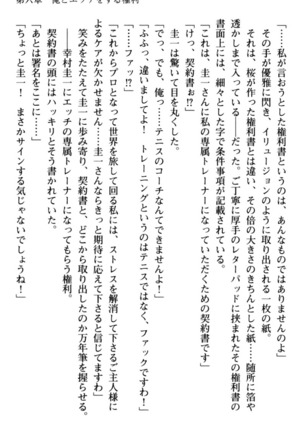 第六章　俺とエッチをする権利
――私が言おうとした権利書というのは、あんなものではなくて……
その手が優雅に閃き、イリュージョンのように取り出される一枚の紙。
それは、桜が作った権利書とは違い、その茎の大きさのきちんとした紙――随所に箔や
透かしまで入っている――だった。ご丁寧に厚手のレターパッドに挟まれたその権利書の
書面上には、細々とした字で条件事項が記載されている。
「これは、圭一さんに私の専属トレーナーになっていただくための契約書です」
「けっ、契約書ぉ!?」
圭一は驚いて目を丸くした。
「でっ、でも……テニスのコーチなんてできませんよ！」
「ふふっ、違いましてよ！　トレーニングというのはテニスではなく、ファックですわ！」
「ファッ!?」
「これからプロとなって世界を旅して回る私には、ストレスを解消して下さるご主人様に
よるケアが欠かせません……圭一さんならきっと期待に応えて下さると信じてますわ」
笑みをたたえて圭一に歩み寄り、契約書と、どこから取り出したのか万年筆を握らせる。
――幸村圭一にエッチの専属トレーナーになってもらう権利。
契約書の頭にはハッキリとそう書かれていた。
「あとは署名をここに……」
「ちょっと圭一！　まさかサインする気じゃないでしょうね！」